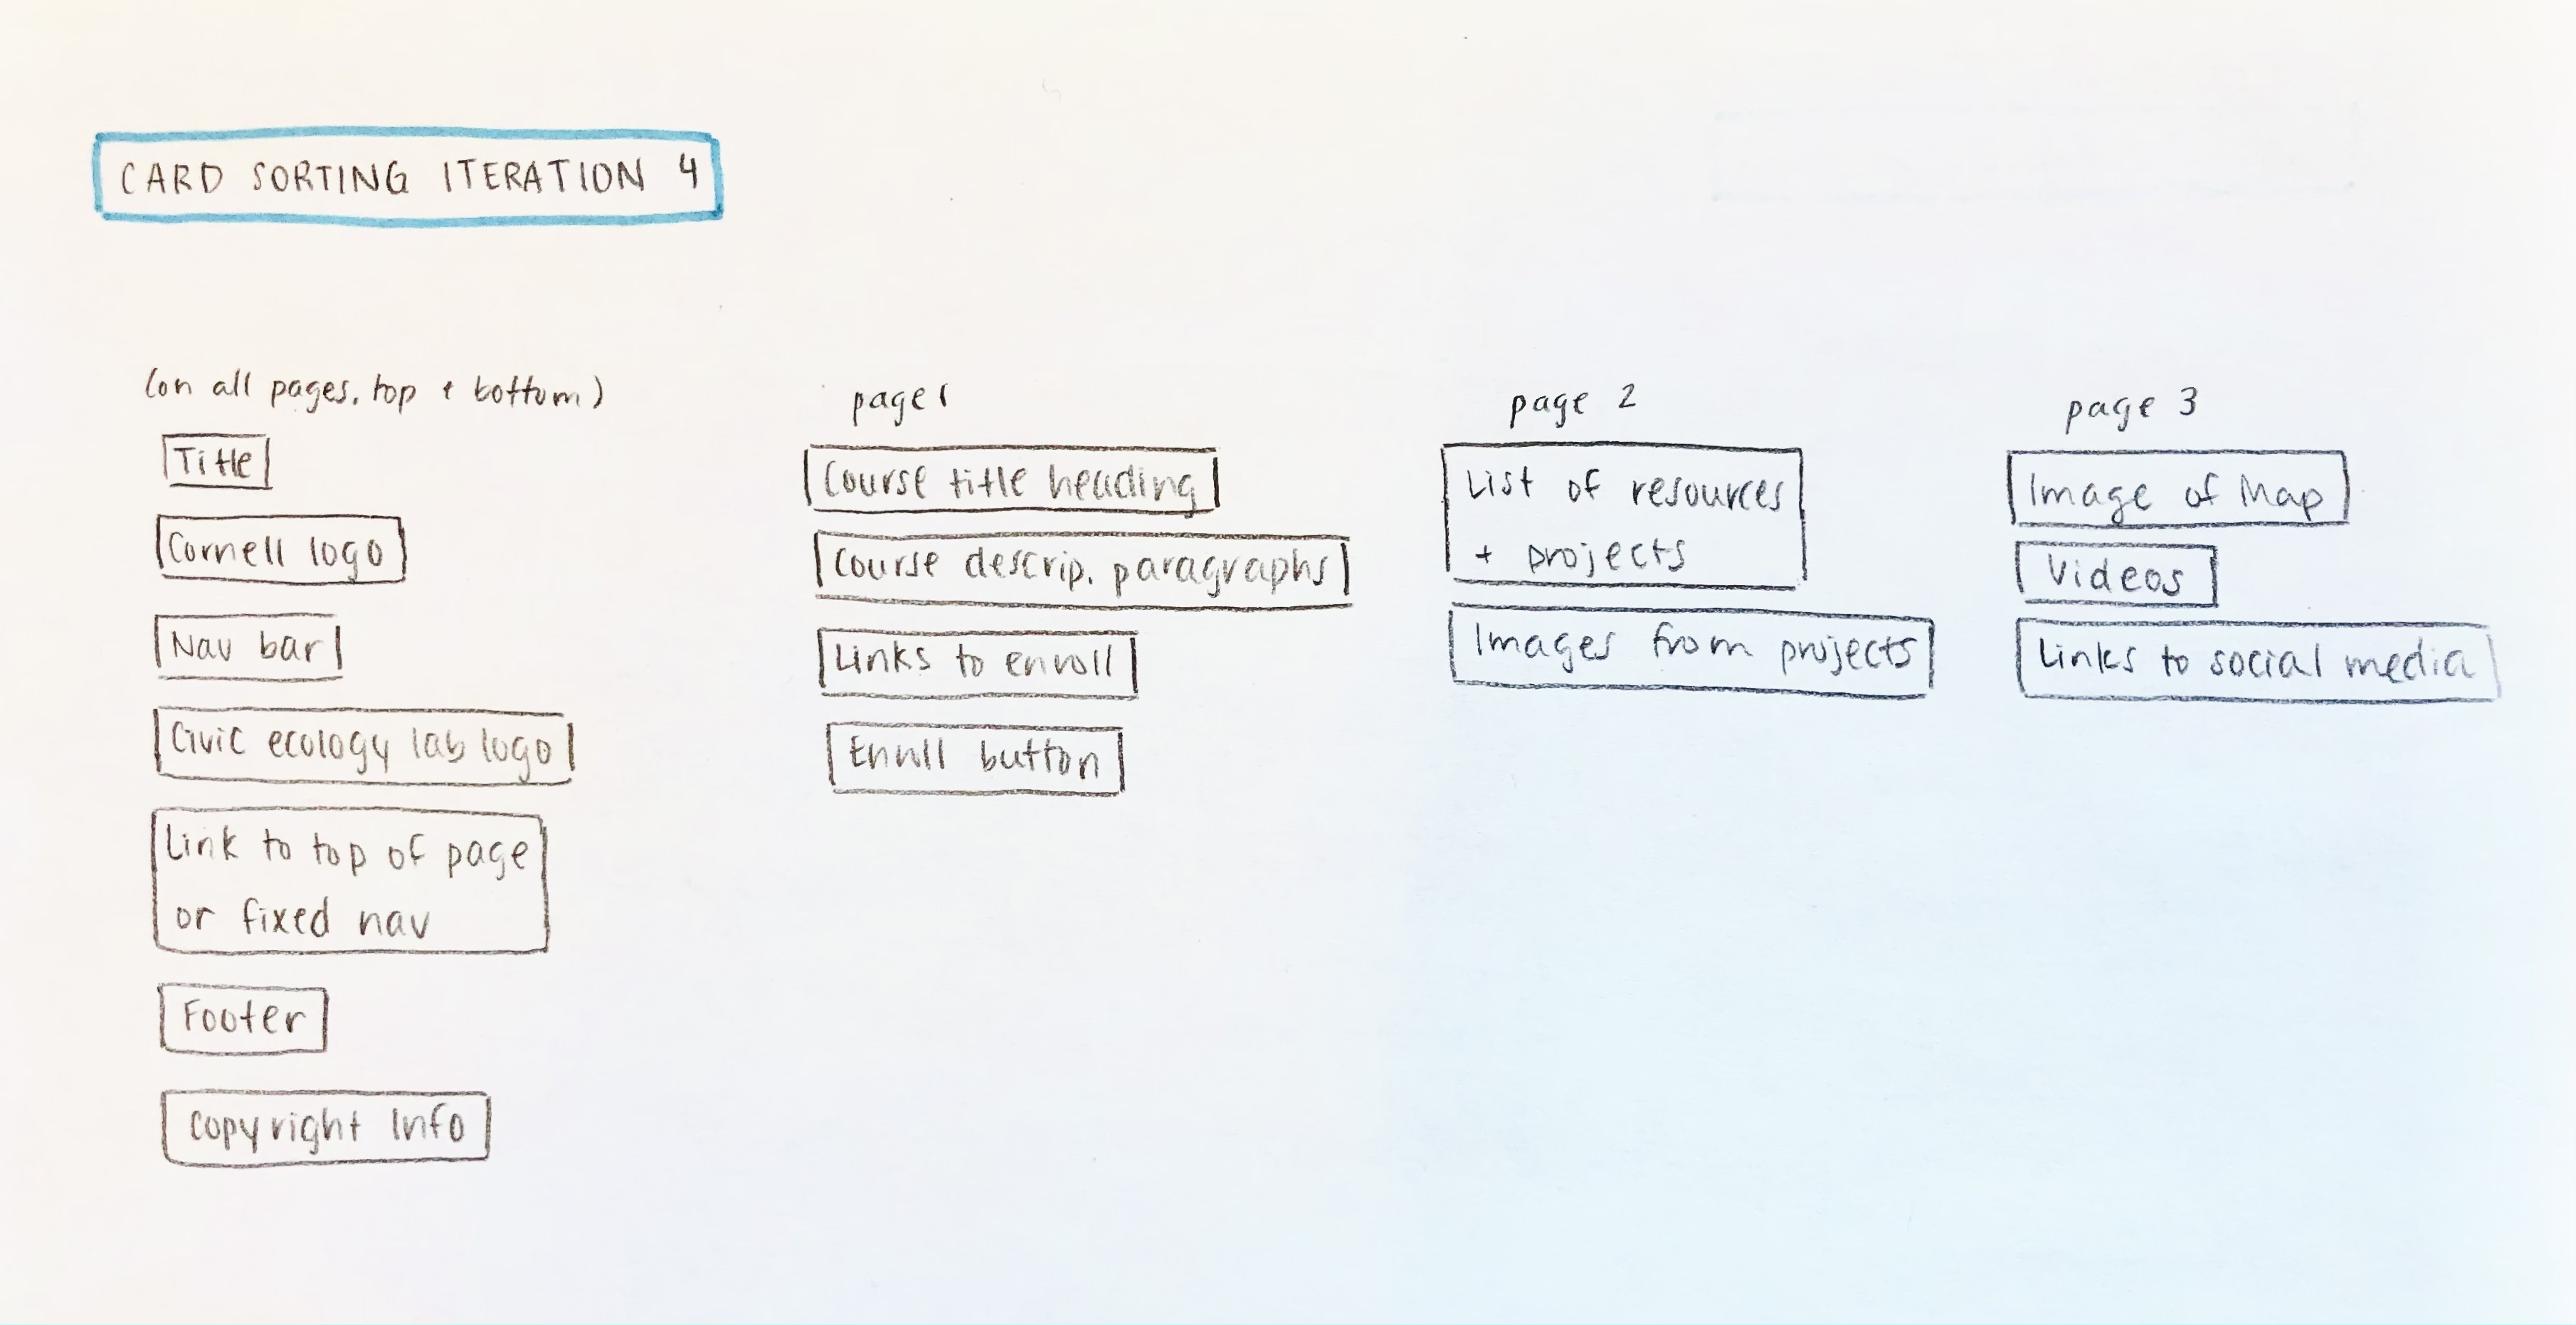 CARD SORTING ITERATION 4
(on all pages, top + bottom)
Title
Cornell logo
Nav bar
Civic ecology lab logo
Link to top of page
or fixed nav
Footer
Copyright Info
page 1
Course title heading
Course descrip. paragraphs
Links to enroll
Enroll button
page 2
List of resources
+ projects
Images from projects
page 3
Image of Map
Videos
Links to social media